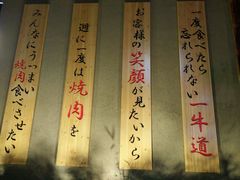 一度食べたら
忘れられない一牛道
お客様の笑顔が見たいから
週に一度は焼肉を
みんなにうっつまい
焼肉食べさせたい